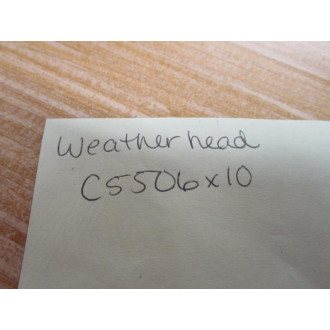 Weatherhead
C5506x10